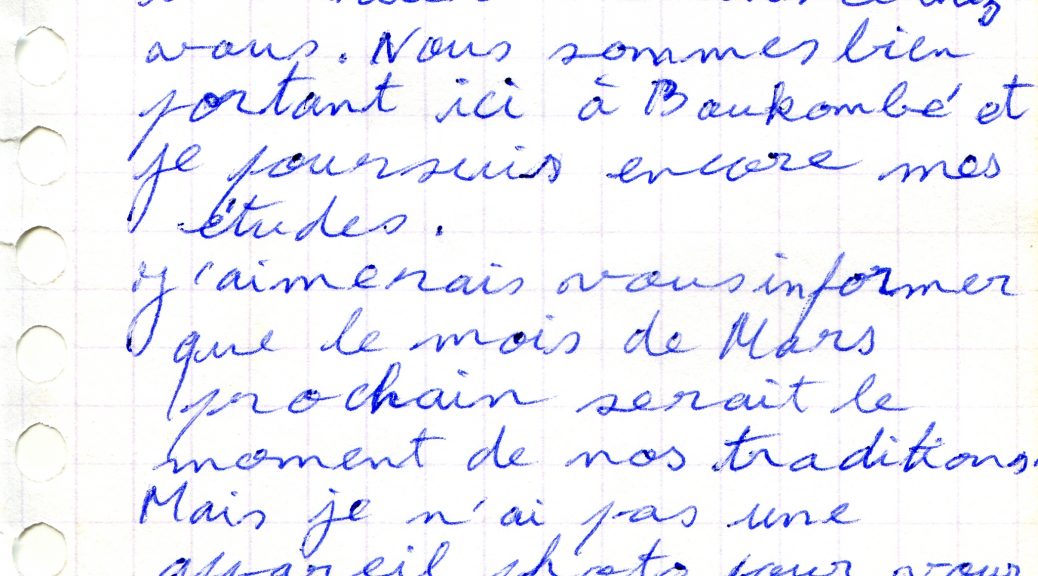 vous. Nous sommes bien
portant ici à Boukombé et
je poursuis encore mes
études.
J'aimerais vous informer
que le mois de Mars
prochain serait le
moment de nos traditions.
Mais je n'ai pas une
appareil photo pour vous